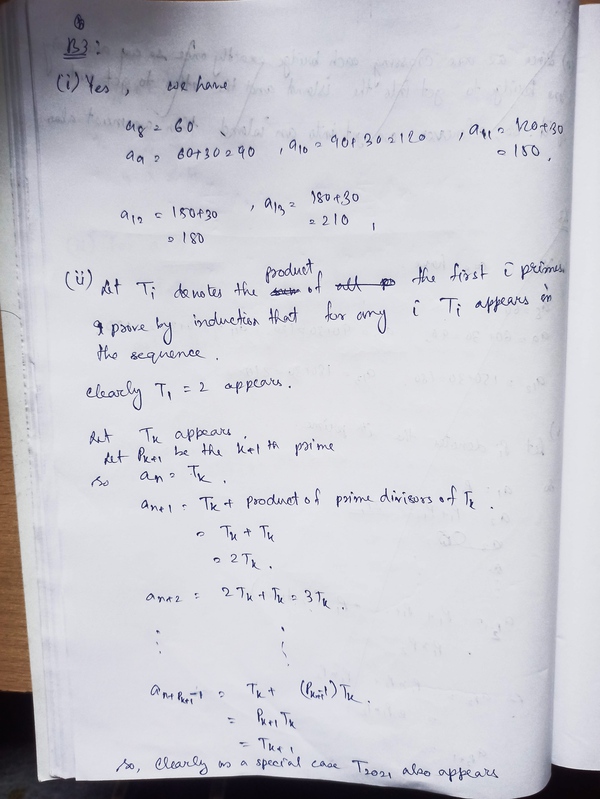 B3:
(i) Yes, we have
a8 = 60
a9 = 60+30 = 90, a10 = 90+30 = 120, a11 = 120+30
= 150,
a12 = 150+30, a13 = 180+30
= 180 = 210,
(ii) Let Ti denotes the product of the first i primes.
I prove by induction that for any i Ti appears in
the sequence.
Clearly T1 = 2 appears.
Let Tk appears.
Let Pk+1 be the k+1 th prime
so an = Tk.
an+1 = Tk + product of prime divisors of Tk.
= Tk + Tk
= 2Tk.
an+2 = 2Tk + Tk = 3Tk.
⋮ ⋮
an+Pk+1-1 = Tk + (Pk+1-1)Tk.
= Pk+1Tk
= Tk+1
So, clearly as a special case T2021 also appears